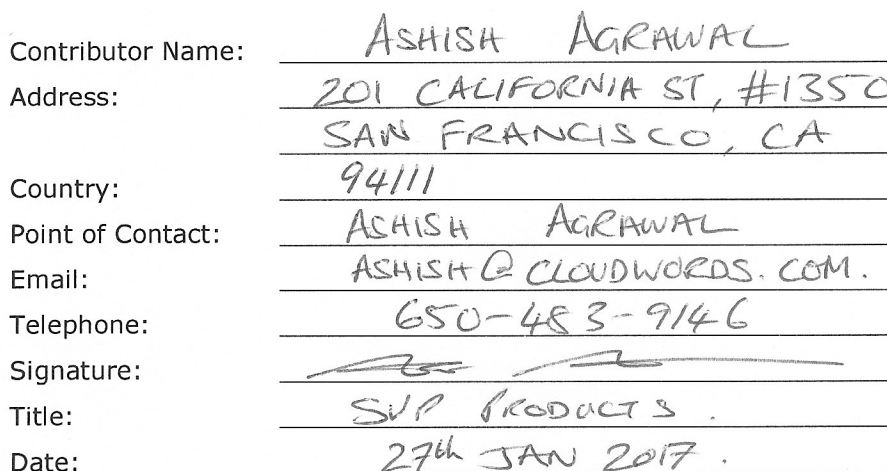 Contributor Name: ASHISH AGRAWAL
Address: 201 CALIFORNIA ST, #1350
SAN FRANCISCO, CA
Country: 94111
Point of Contact: ASHISH AGRAWAL
Email: ASHISH@CLOUDWORDS.COM.
Telephone: 650-483-9146
Signature:
Title: SVP PRODUCTS.
Date: 27th JAN 2017.